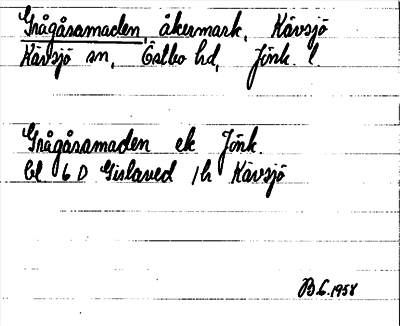 Grågåsamaden, åkermark, Kävsjö
Kävsjö sn, Östbo hd, Jönk. l
Grågåsamaden ek Jönk.
bl 6 D Gislaved 1h Kävsjö
B.G. 1958